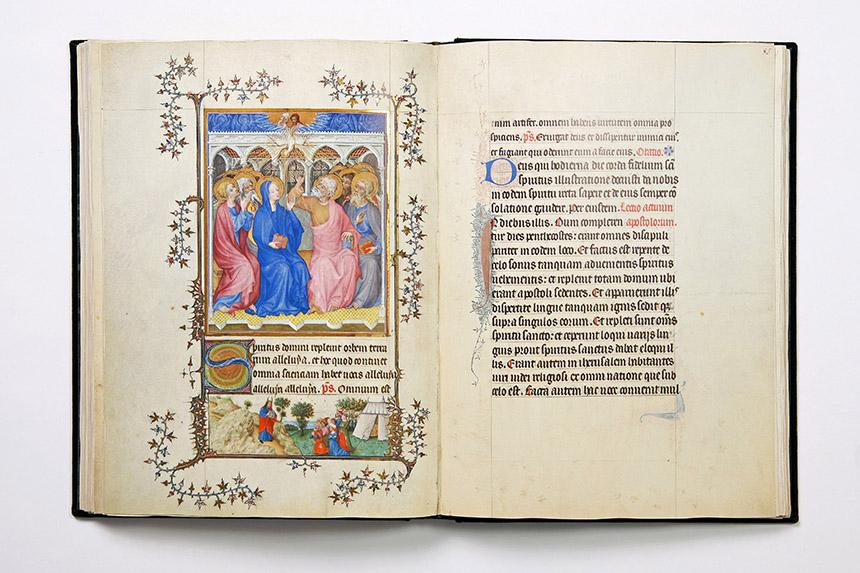 Spiritus domini repleuit orbem terra
rum alleluya. et hoc quod continet
omnia scienciam habet uocis alleluya
alleluya alleluya. ps. Omnium est
enim artifex. omnem habens uirtutem omnia pro
spiciens. ps. Exurgat deus et dissipentur inimici eius
et fugiant qui oderunt eum a facie eius. Oratio.
Deus qui hodierna die corda fidelium sci
spiritus illustratione docuisti da nobis
in eodem spiritu recta sapere et de eius semper co
solatione gaudere. per eiusdem. Lectio actuum
In diebus illis. Dum complerent apostolorum.
tur dies penthecostes: erant omnes discipuli
pariter in eodem loco. Et factus est repente de
celo sonus tanquam aduenientis spiritus
uehementis: et repleuit totam domum ubi
erant apostoli sedentes. Et apparuerunt illis
dispertite lingue tanquam ignis sedit que
supra singulos eorum. Et repleti sunt oms
spiritu sancto: et ceperunt loqui uariis lin
guis prout spiritus sanctus dabat eloqui il
lis. Erant autem in iherusalem habitantes
uiri iudei religiosi ex omni natione que sub
celo est. Facta autem hac uoce conuenit mul